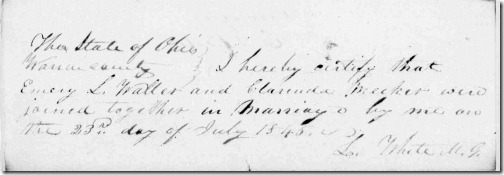 The State of Ohio
Warren county } I hereby certify that
Emery L. Waller and Clarinda Meeker were
joined together in Marriage by me on
the 23rd day of July 1848.
L. White M. G.